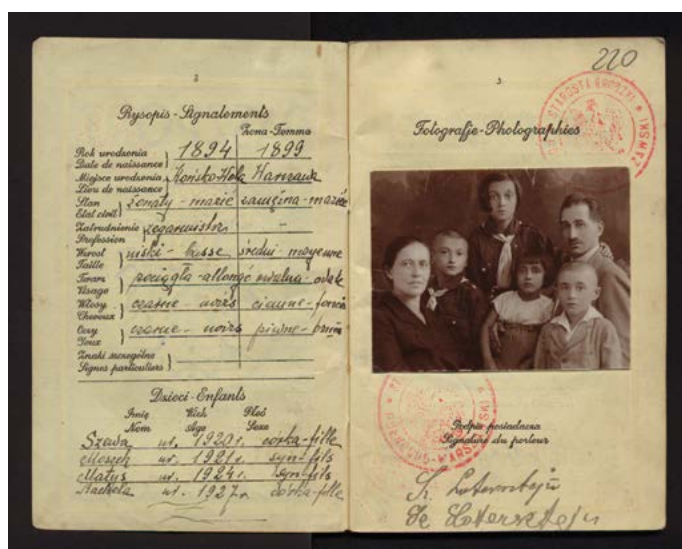 Rysopis - Signalements
Żona - Femme
Rok urodzenia
Date de naissance } 1894 1899
Miejsce urodzenia
Lieu de naissance } Końsko Wola Warszawa
Stan
Etat civil } żonaty - marié zamężna - mariée
Zatrudnienie
Profession } zegarmistrz -
Wzrost
Taille } niski - basse średni - moyenne
Twarz
Visage } pociągła - allongé owalna - ovale
Włosy
Cheveux } czarne - noirs ciemne - foncés
Oczy
Yeux } czarne - noirs piwne - bruns
Znaki szczególne
Signes particuliers }
Dzieci - Enfants
Imię Wiek Płeć
Nom Age Sexe
Szewa ur. 1920 r. córka - fille
Moszek ur. 1921 r. syn - fils
Matys ur. 1924 r. syn - fils
ur. 1927 r. córka - fille
220
5
Fotografje - Photographies
STAROSTA GRODZKI
Podpis posiadacza
Signature du porteur